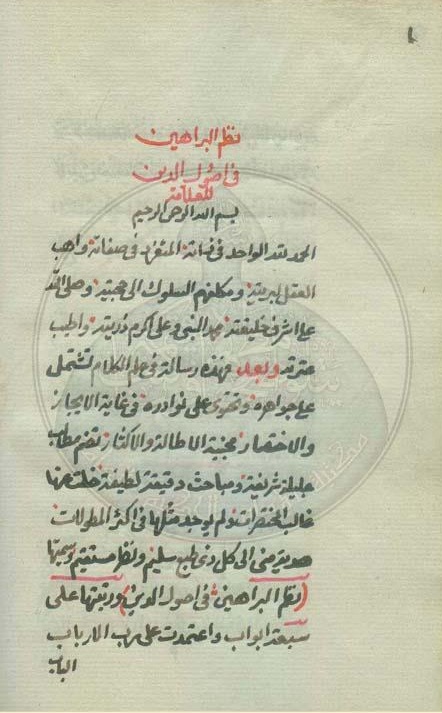 نظم البراهين
في اصول الدين
للعلامة
بسم الله الرحمن الرحيم
الحمد لله الواحد في ذاته المتفرد في صفاته واهب
العقل لبريته ومكلفهم السلوك الى محبته وصلى الله
على اشرف خليقته محمد النبي وعلى اكرم ذريته واطيب
عترته وبعد فهذه رسالة في علم الكلام تشتمل
على جواهره وتحتوى على نوادره في غاية الايجاز
والاختصار مجنبة الاطالة والاكثار تضم مطالب
جليلة شريفة ومباحث دقيقة لطيفة خلت عنها
غالب المختصرات ولم يوجد مثلها في اكثر المطولات
هدية منى الى كل ذى طبع سليم ونظر مستقيم وسميتها
(نظم البراهين في اصول الدين) ورتبتها على
سبعة ابواب واعتمدت على رب الارباب
الباب